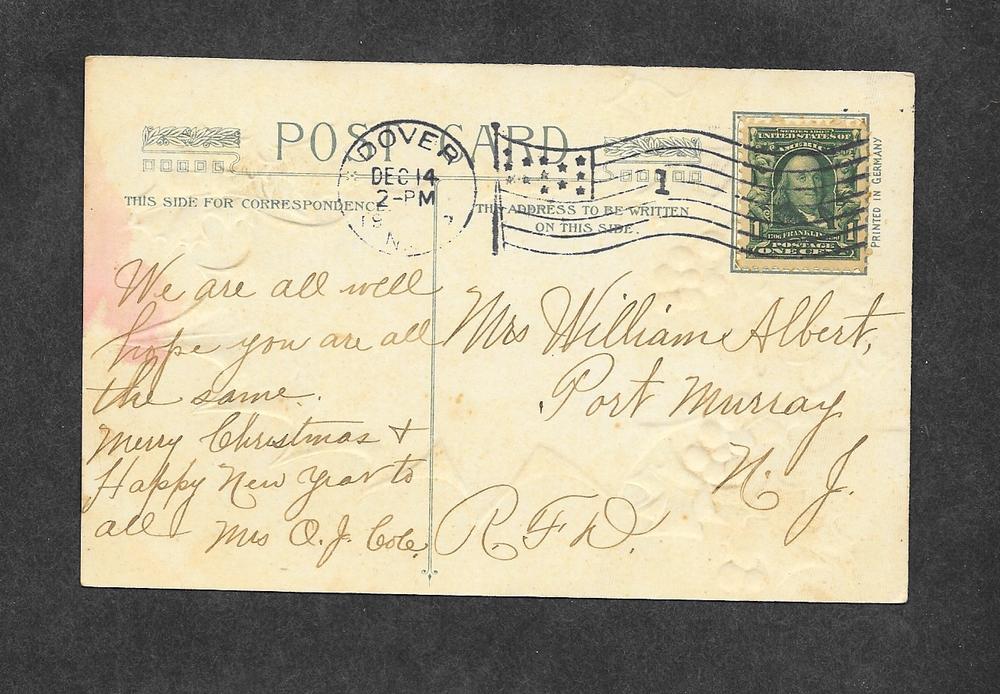 POST CARD
DOVER
DEC 14
2-PM
19 7
N.
1
THIS SIDE FOR CORRESPONDENCE.
THE ADDRESS TO BE WRITTEN
ON THIS SIDE.
SERIES 1902
UNITED STATES OF
AMERICA
1706 FRANKLIN 1790
1 1
POSTAGE
ONE CENT
PRINTED IN GERMANY
We are all well
hope you are all
the same.
Merry Christmas +
Happy New Year to
all Mrs O. J. Cole.
Mrs William Albert,
Port Murray
N. J.
R. F. D.